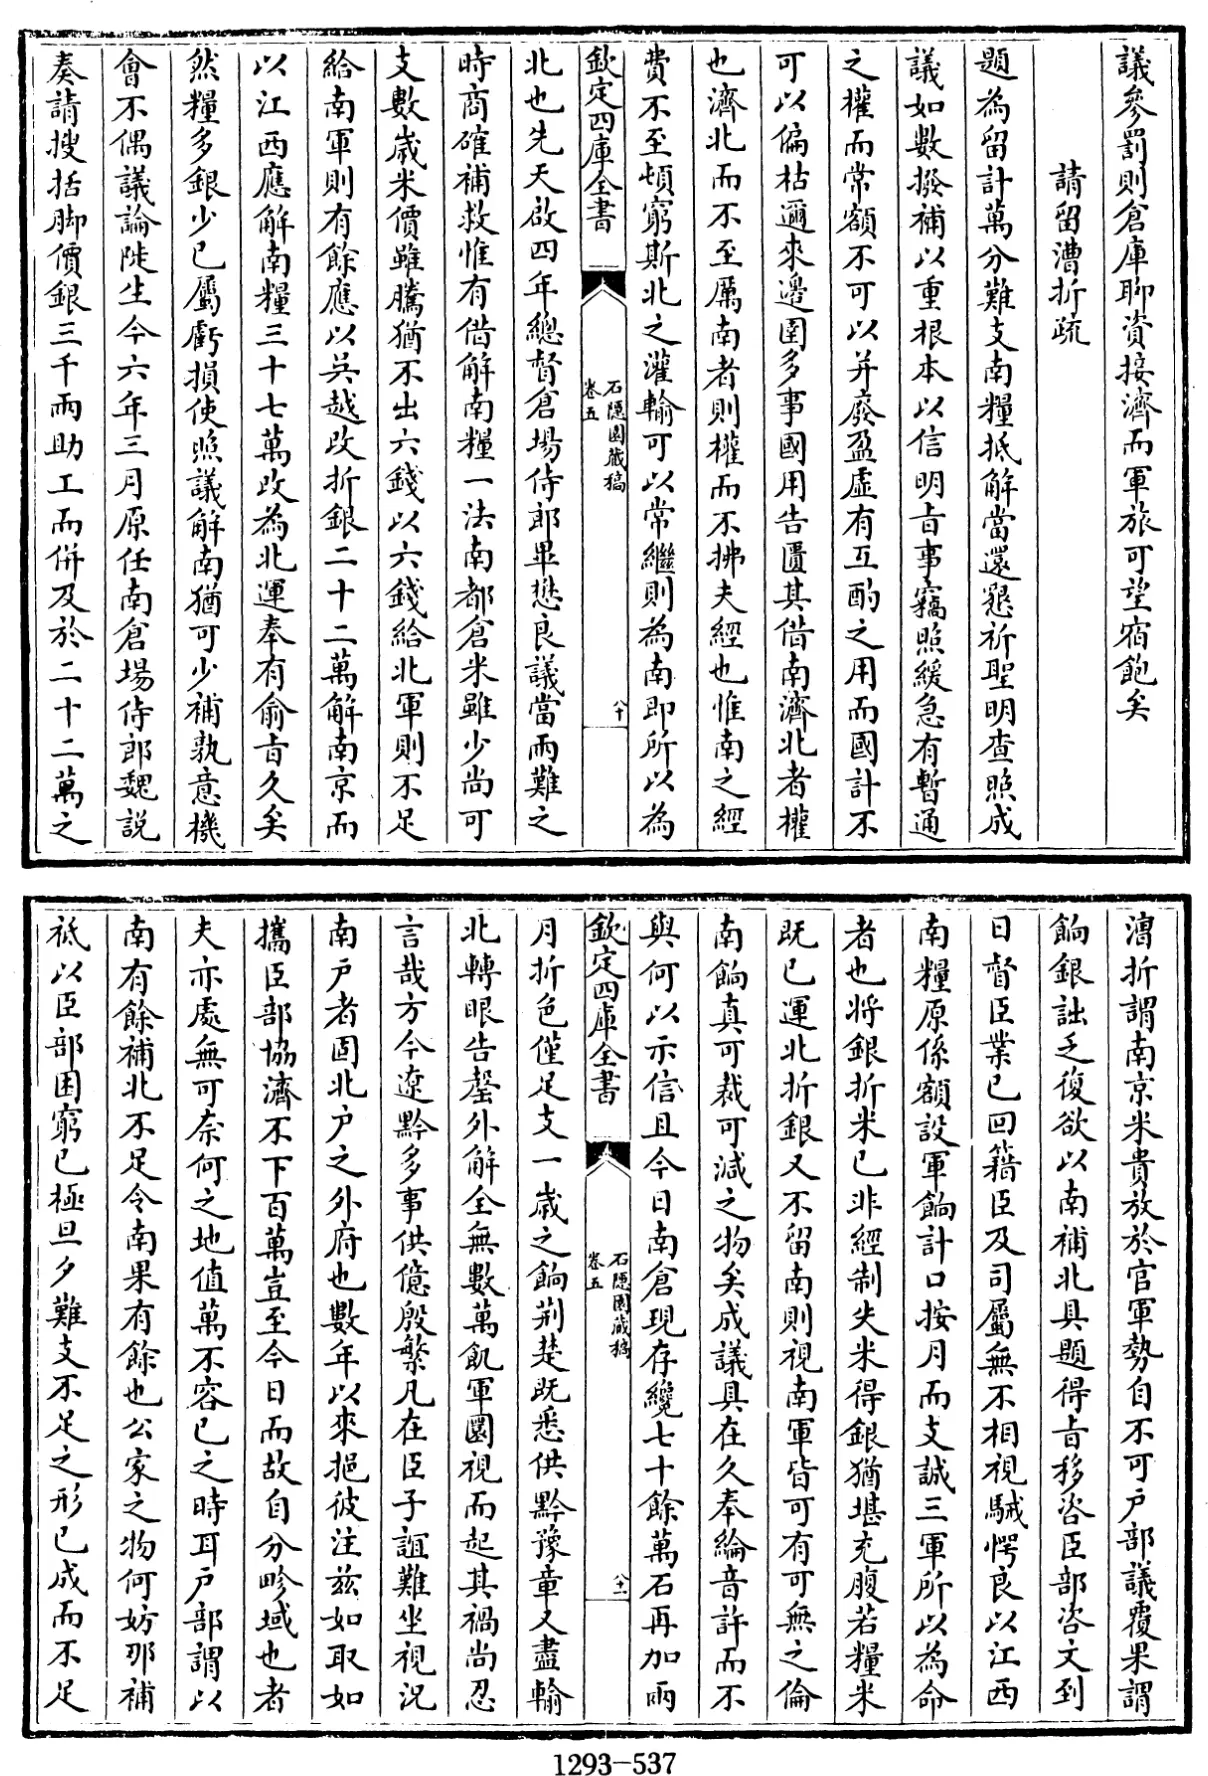 議參罰則倉庫聊資接濟而軍旅可望宿飽矣
請留漕折疏
題為留計萬分難支南糧抵解當還懇祈聖明查照成
議如數撥補以重根本以信明旨事竊照緩急有暫通
之權而常額不可以并廢盈虛有互酌之用而國計不
可以偏枯邇來邊圉多事國用告匱其借南濟北者權
也濟北而不至厲南者則權而不拂夫經也惟南之經
費不至頓窮斯北之灌輸可以常繼則為南即所以為
欽定四庫全書
石隱園藏稿
卷五
八十
北也先天啟四年總督倉場侍郎畢懋良議當兩難之
時商確補救惟有借解南糧一法南都倉米雖少尚可
支數歲米價雖騰猶不出六錢以六錢給北軍則不足
給南軍則有餘應以吳越改折銀二十二萬解南京而
以江西應解南糧三十七萬改為北運奉有俞旨久矣
然糧多銀少已屬虧損使照議解南猶可少補孰意機
會不偶議論陡生今六年三月原任南倉場侍郎魏說
奏請搜括脚價銀三千兩助工而併及於二十二萬之
漕折謂南京米貴放於官軍勢自不可戶部議覆果謂
餉銀詘乏復欲以南補北具題得旨移咨臣部咨文到
日督臣業已回籍臣及司屬無不相視駴愕良以江西
南糧原係額設軍餉計口按月而支誠三軍所以為命
者也將銀折米已非經制失米得銀猶堪充腹若糧米
既已運北折銀又不留南則視南軍皆可有可無之倫
南餉真可裁可減之物矣成議具在久奉綸音許而不
與何以示信且今日南倉現存纔七十餘萬石再加兩
欽定四庫全書
石隱園藏稿
卷五
八十一
月折色僅足支一歲之餉荊楚既悉供黔豫章又盡輸
北轉眼告罄外解全無數萬飢軍圜視而起其禍尚忍
言哉方今遼黔多事供億殷繁凡在臣子誼難坐視況
南戶者固北戶之外府也數年以來挹彼注茲如取如
攜臣部協濟不下百萬豈至今日而故自分畛域也者
夫亦處無可奈何之地值萬不容已之時耳戶部謂以
南有餘補北不足令南果有餘也公家之物何妨那補
祗以臣部困窮已極旦夕難支不足之形已成而不足
1293-537